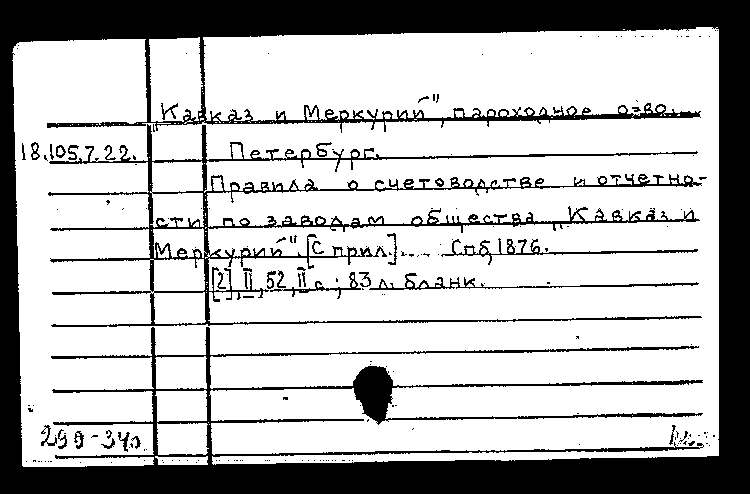 „Кавказ и Меркурий", пароходное о-во.
18.105.7.22. Петербург.
Правила о счетоводстве и отчетно-
сти по заводам общества „Кавказ и
Меркурий". [С прил.]. Спб, 1876.
[2], II, 52, II с.; 83 л. бланк.
299-340